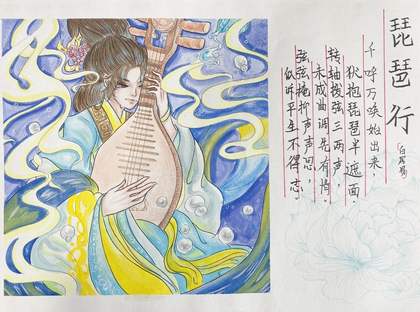 琵琶行
(白居易)
千呼万唤始出来,
犹抱琵琶半遮面.
转轴拨弦三两声,
未成曲调先有情.
弦弦掩抑声声思,
似诉平生不得志.